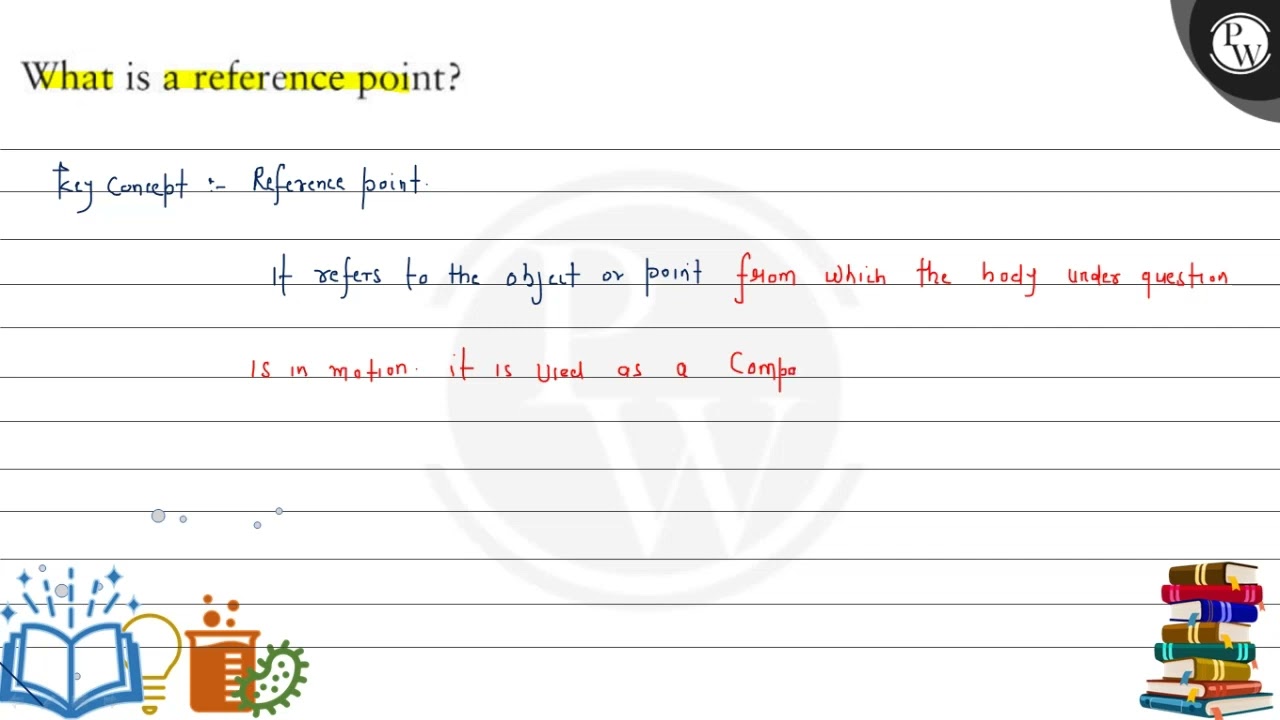 PW
What is a reference point?
Key Concept :- Reference point.
It refers to the object or point from which the body under question
is in motion. it is used as a Compa
PW